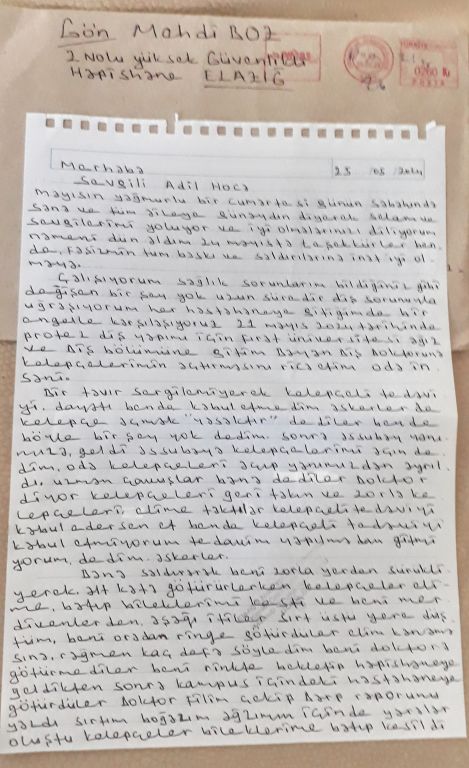 Gön Mahdi BOZ
2 Nolu yüksek Güvenlikli
Həpishəne ELAZIĞ
0260
POSTA
Marhaba 25 /05/2024
Savgili Adil Hoca
mayısın yağmurlu bir cumartasi günün sabahında
sana va tüm aileya günaydın diyarak salam va
savgilarimi yoluyor va iyi olmalarınızı diliyorum
namanı dün aldım 24 mayısta taşakkürlar ban
da, faşizmin tüm baskı va saldırılarına inat iyi ol
maya.
Çalışıyorum sağlık sorunlarım bildiğiniz gibi
dağişan bir şay yok uzun süradir diş sorunuyla
uğraşıyorum har hastahanaya gittiğimda bir
angalla karşılaşıyoruz 21 mayıs 2024 tarihinda
protez diş yapımı için fırat üniversitasi ağız
va Diş bölümüna gittim Bayan Diş Doktoruna
kalapçalarimin açtırmasını rica attim oda in
sani.
Bir tavır sargilamiyarak kalapçali tadavi
yi, dayattı banda kabul atmadim askarlar da
kalapça açmak "yasaktır" dadilar banda
böyla bir şay yok dadim. sonra assubay yanı
mıza, galdi assubaya kalapçalarimi açın da
dim, oda kalapçalari açıp yanımızdan ayrıl
dı, uzman çavuşlar bana dadilar Doktor
diyor kalapçalari gari takın va zorla ka
lapçalari, alima taktılar kalapçali tadaviyi
kabul adarsan at banda kalapçali tadaviyi
kabul atmiyorum tadavim yapılmadan gitmi
yorum, dadim. askarlar.
Bana saldırarak bani zorla yardan sürükli
yarak, alt kata götürürlarkan kalapçalar ali
ma, batıp bilaklarimi kasti va bani mar
divanlardan, aşağı ittilar sırt üstü yara düş
tüm, bani oradan ringa götürdülar alim kanama
sına, rağman kaç dafa söyladim bani doktora
götürmadilar bani rinkta baklatip hapishanaya
galdiktan sonra kampus içindaki hastahanaya
götürdülar Doktor filim çakip Darp raporunu
yazdı sırtım boğazım ağzımın içinda yaralar
oluştu kalapçalar bilaklarima batıp kasildi